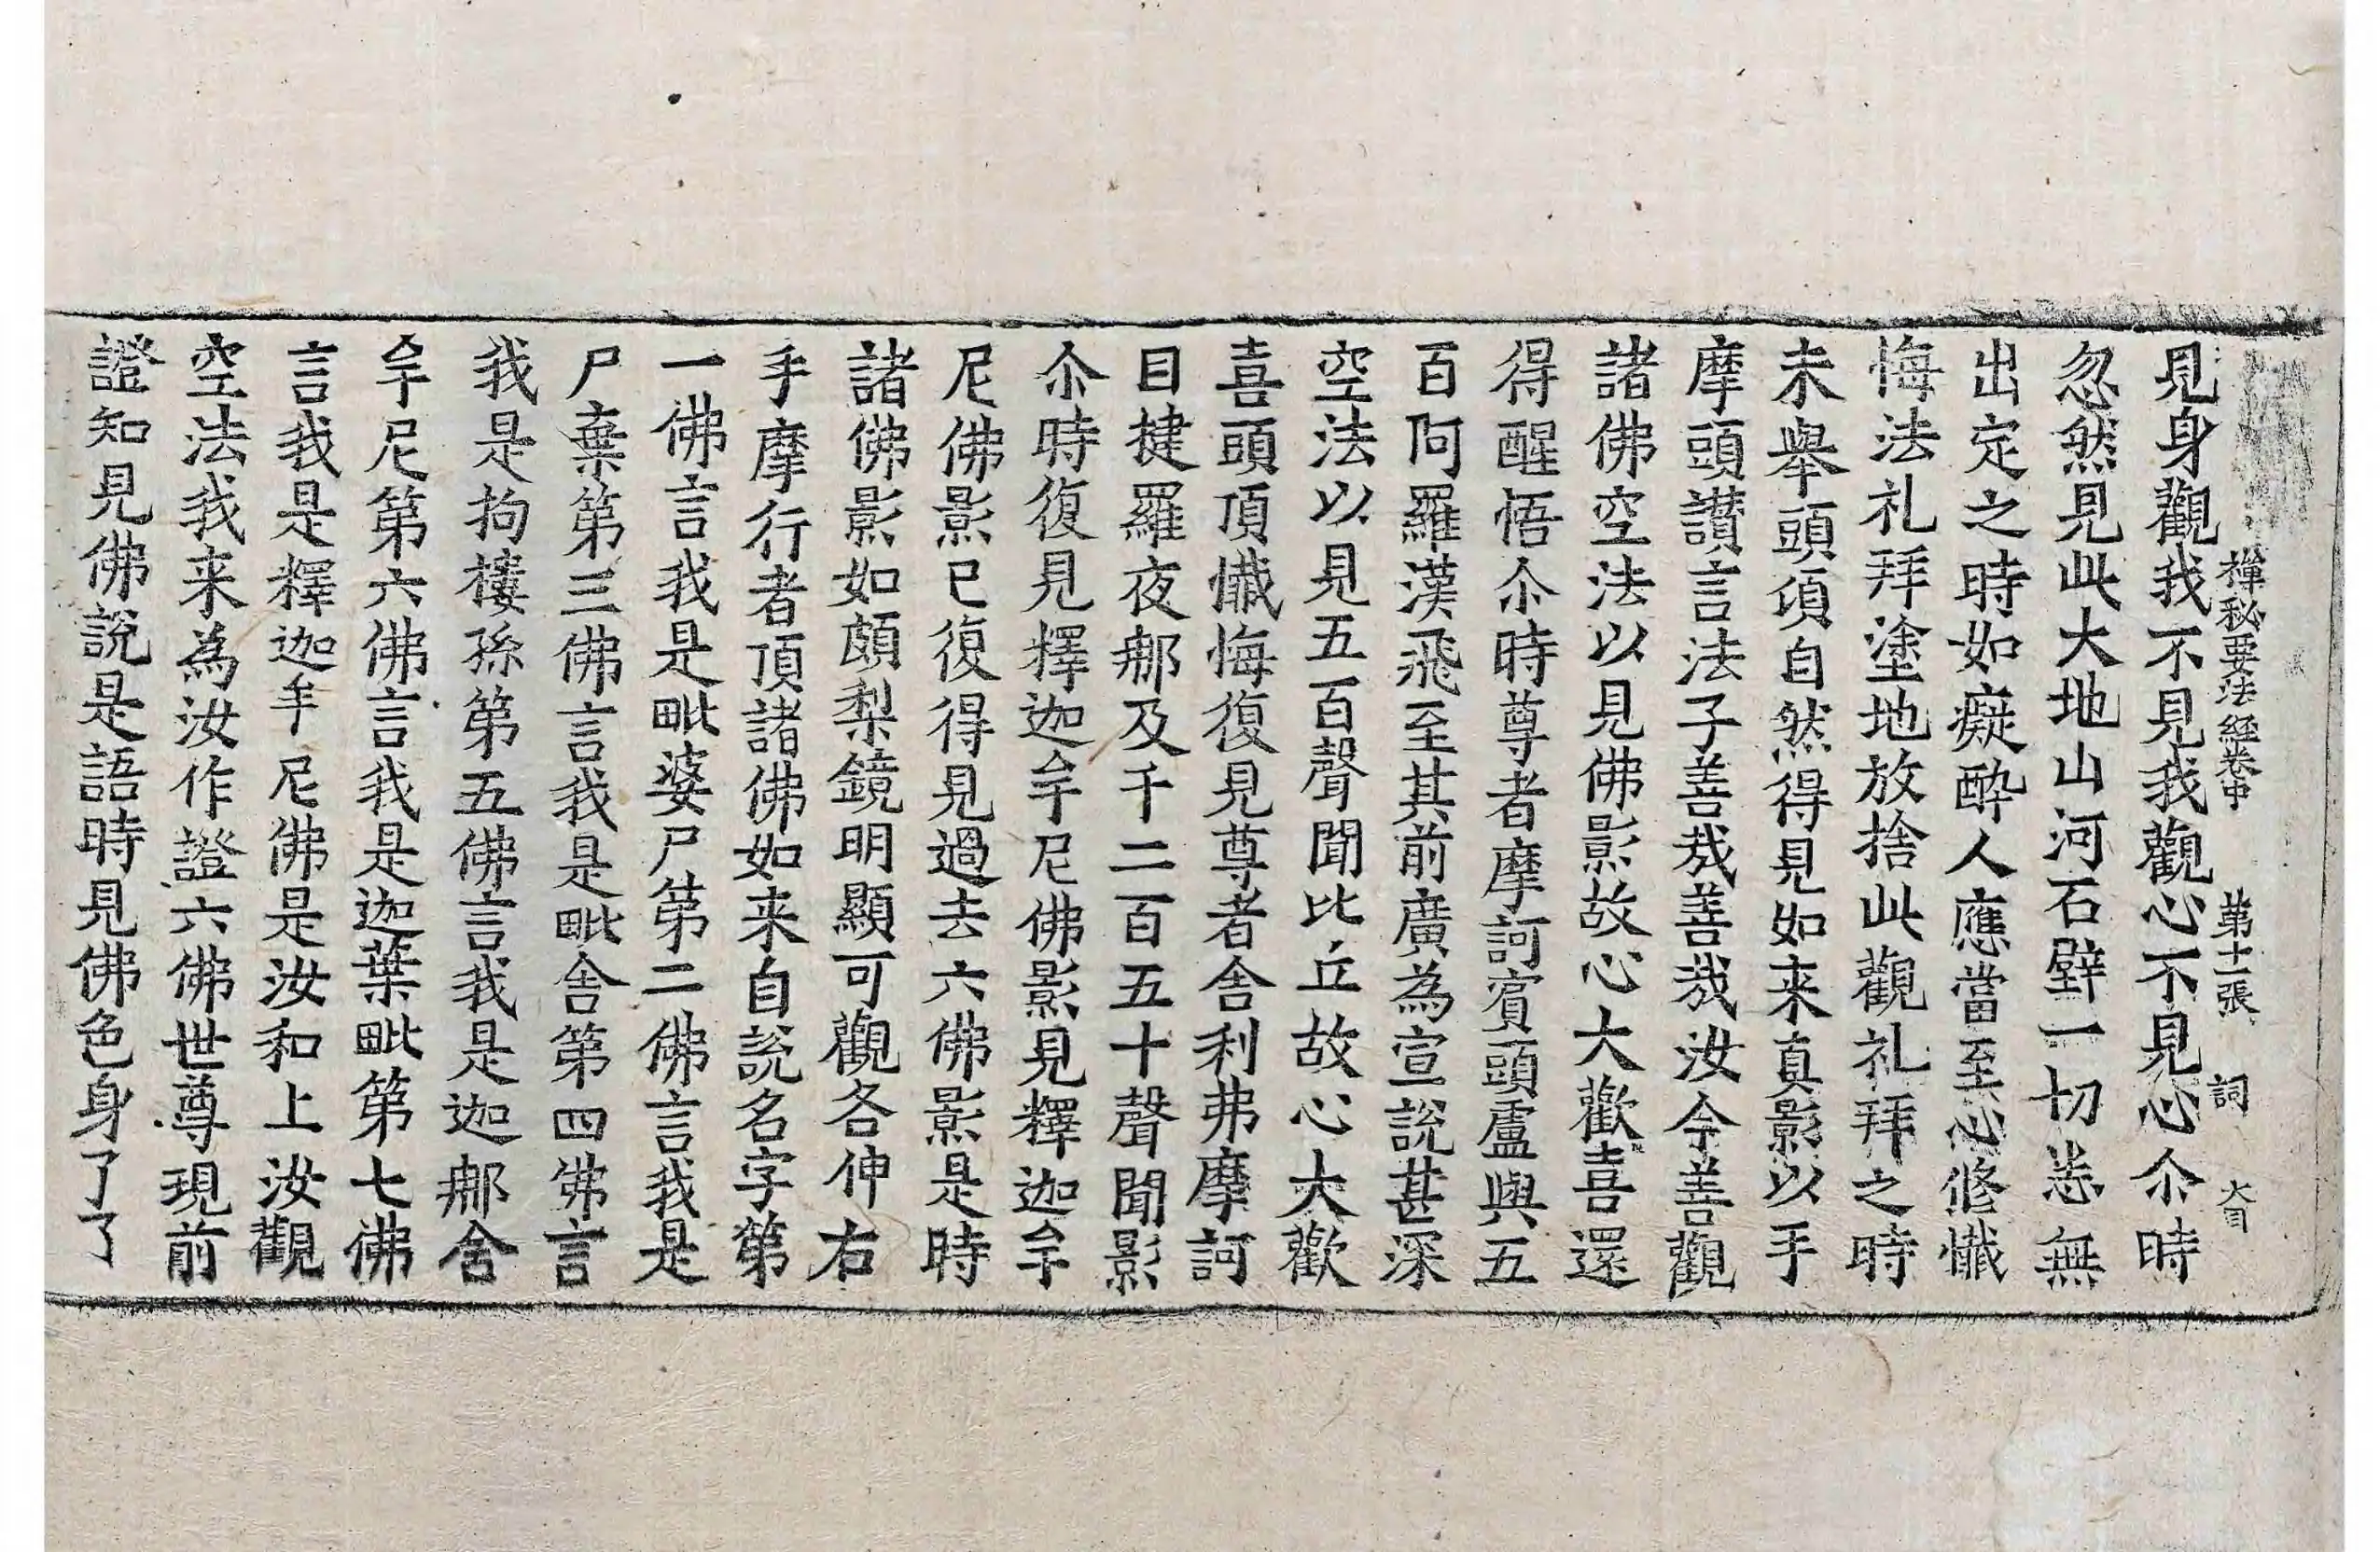 禪秘要法經卷中 第十一張 詞 大目
見身觀我不見我觀心不見心尒時
忽然見此大地山河石壁一切悉無
出定之時如癡醉人應當至心修懺
悔法礼拜塗地放捨此觀礼拜之時
未舉頭頃自然得見如来真影以手
摩頭讃言法子善哉善哉汝今善觀
諸佛空法以見佛影故心大歡喜還
得醒悟尒時尊者摩訶賓頭盧與五
百阿羅漢飛至其前廣為宣說甚深
空法以見五百聲聞比丘故心大歡
喜頭頂懺悔復見尊者舎利弗摩訶
目揵羅夜那及千二百五十聲聞影
尒時復見釋迦牟尼佛影見釋迦牟
尼佛影已復得見過去六佛影是時
諸佛影如頗梨鏡明顯可觀各伸右
手摩行者頂諸佛如来自說名字第
一佛言我是毗婆尸第二佛言我是
尸棄第三佛言我是毗舎第四佛言
我是拘樓孫第五佛言我是迦那舎
牟尼第六佛言我是迦葉毗第七佛
言我是釋迦牟尼佛是汝和上汝觀
空法我来為汝作證六佛世尊現前
證知見佛說是語時見佛色身了了